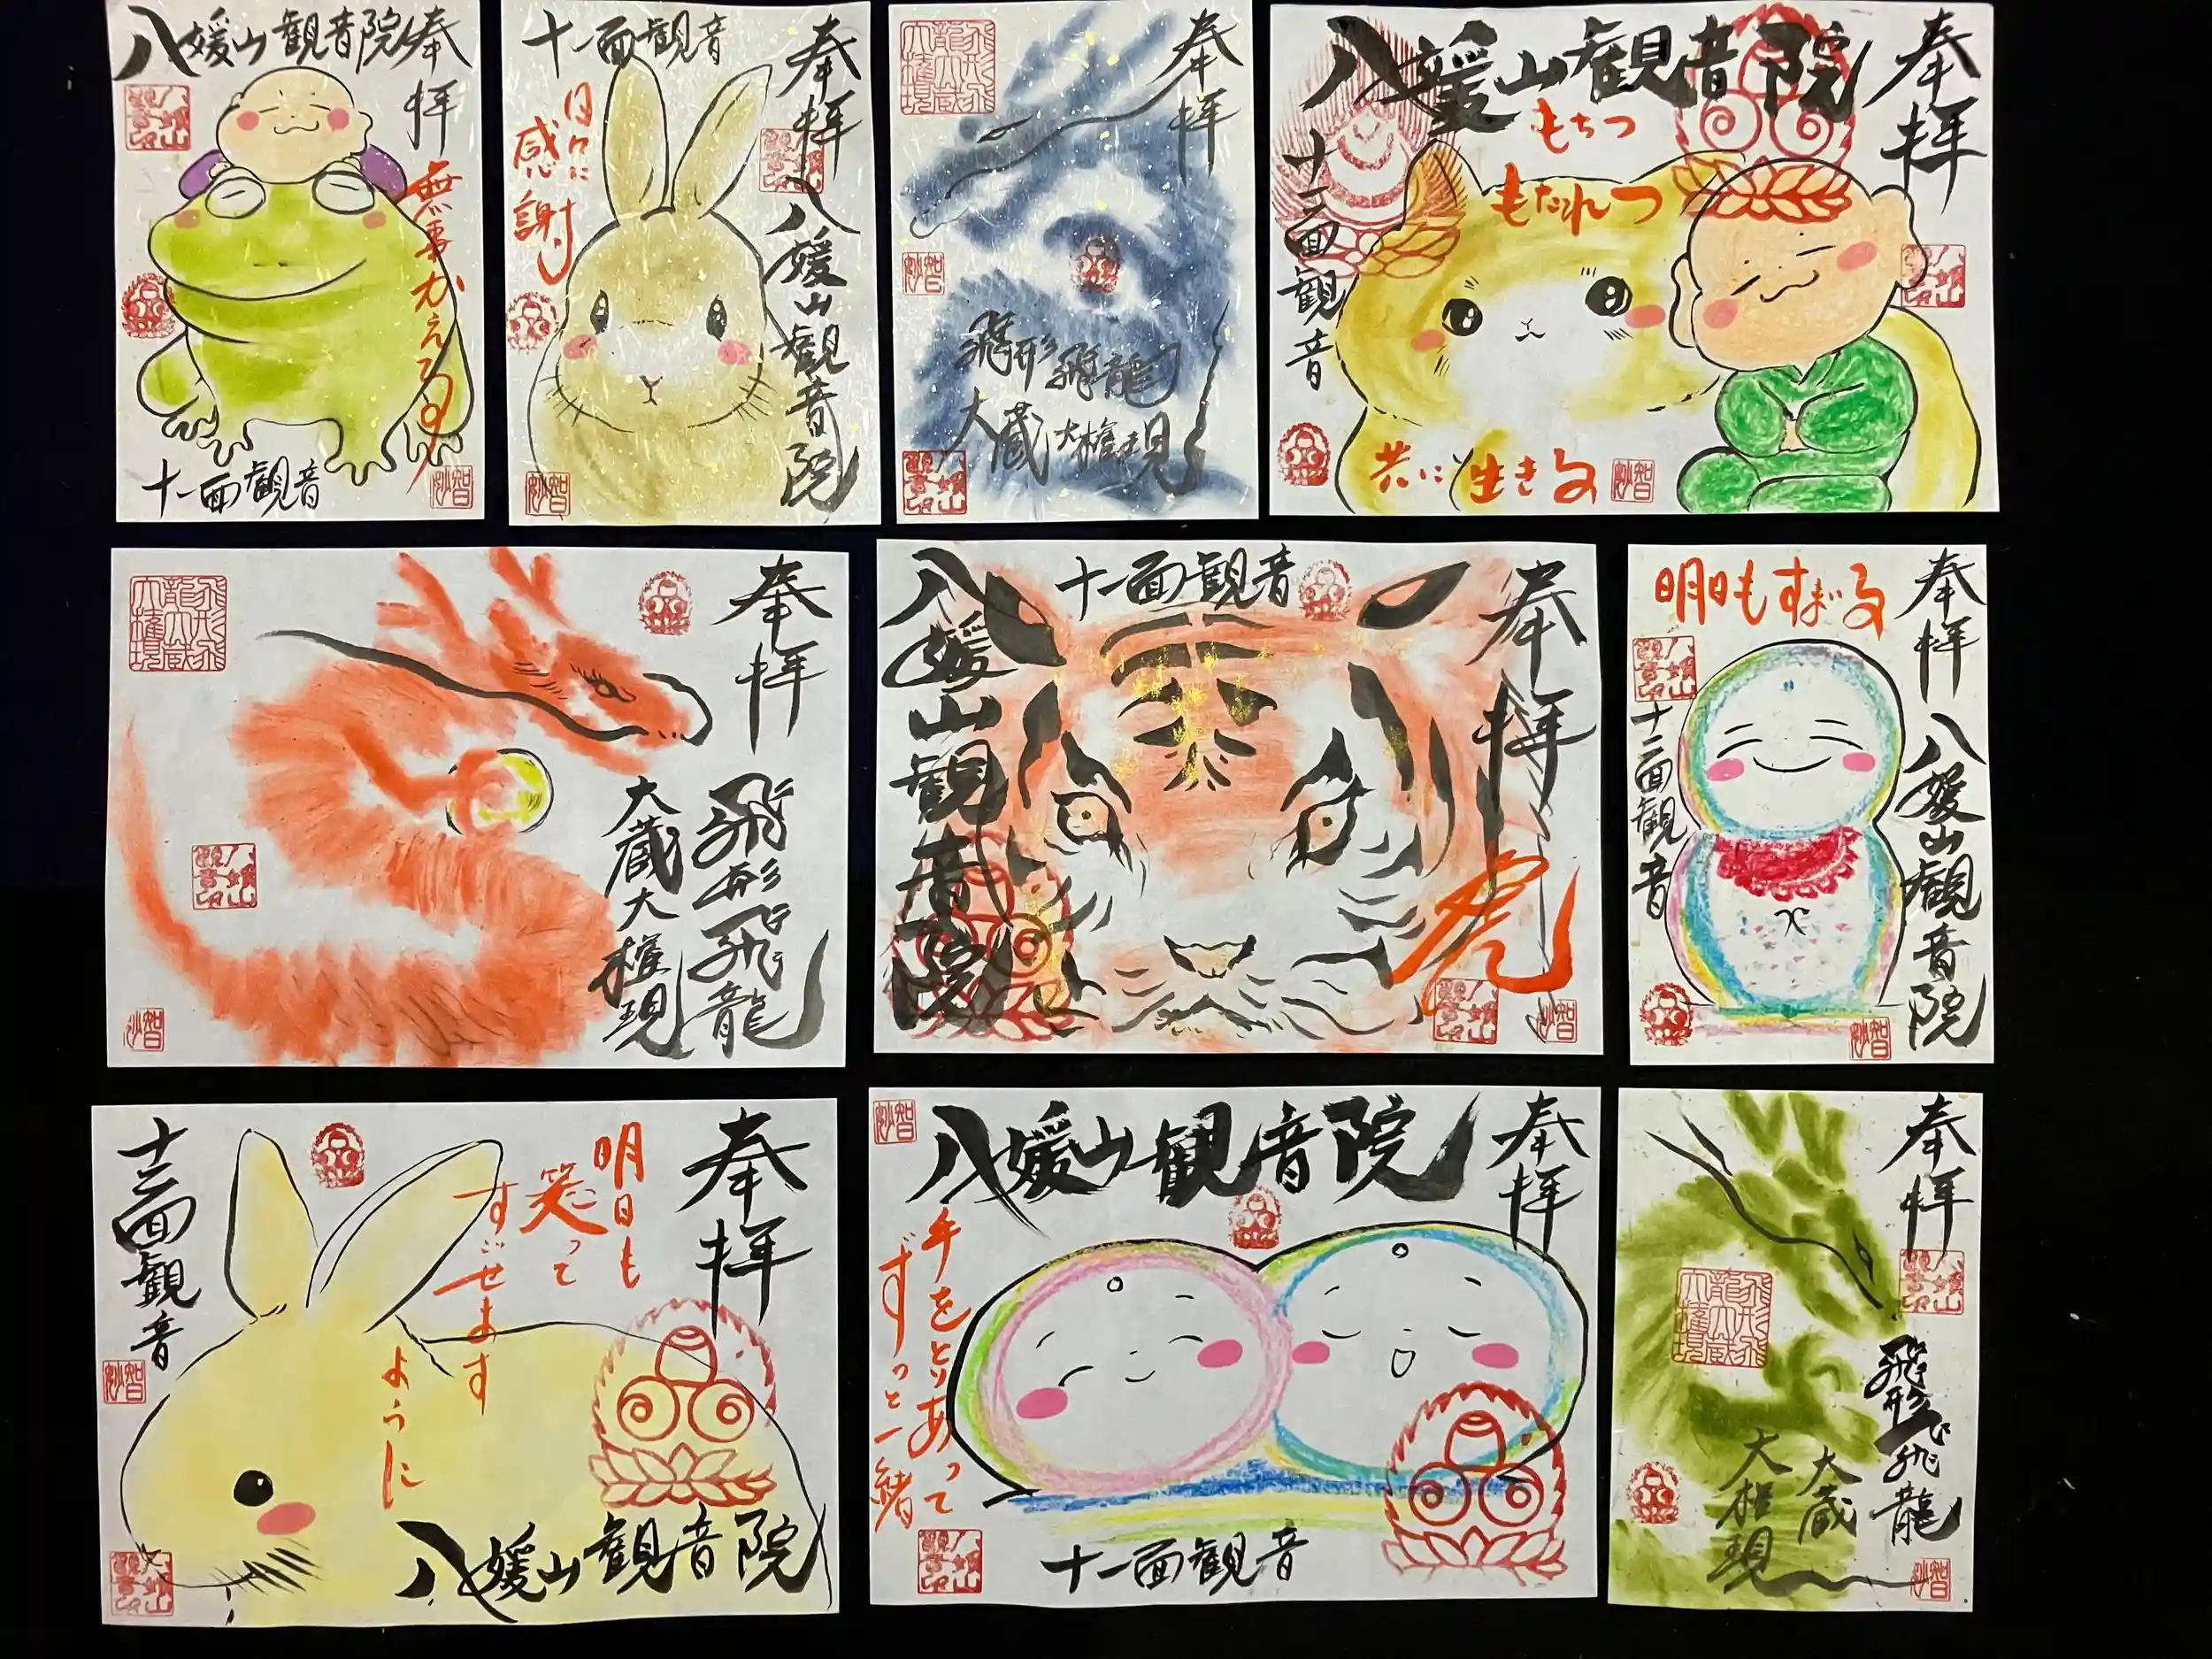 奉拝
八媛山観音院
無事かえる
十一面観音
奉拝
八媛山観音院
十一面観音
日々に
感謝
奉拝
飛形飛龍
大蔵大権現
奉拝
八媛山観音院
もちつ
もたれつ
十一面観音
共に生きる
奉拝
飛形飛龍
大蔵大権現
奉拝
十一面観音
八媛山観音院
虎
奉拝
八媛山観音院
明日もすまいる
十一面観音
奉拝
明日も
笑って
すごせます
ように
八媛山観音院
十一面観音
奉拝
八媛山観音院
手をとりあって
ずっと一緒
十一面観音
奉拝
飛形飛龍
大蔵
大権現